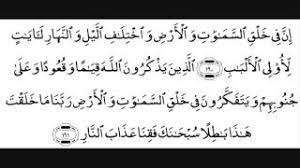 إِنَّ فِى خَلْقِ ٱلسَّمَـٰوَٰتِ وَٱلْأَرْضِ وَٱخْتِلَـٰفِ ٱلَّيْلِ وَٱلنَّهَارِ لَـَٔايَـٰتٍ
لِّأُو۟لِى ٱلْأَلْبَـٰبِ ١٩٠ ٱلَّذِينَ يَذْكُرُونَ ٱللَّهَ قِيَـٰمًا وَقُعُودًا وَعَلَىٰ
جُنُوبِهِمْ وَيَتَفَكَّرُونَ فِى خَلْقِ ٱلسَّمَـٰوَٰتِ وَٱلْأَرْضِ رَبَّنَا مَا خَلَقْتَ
هَـٰذَا بَـٰطِلًا سُبْحَـٰنَكَ فَقِنَا عَذَابَ ٱلنَّارِ ١٩١